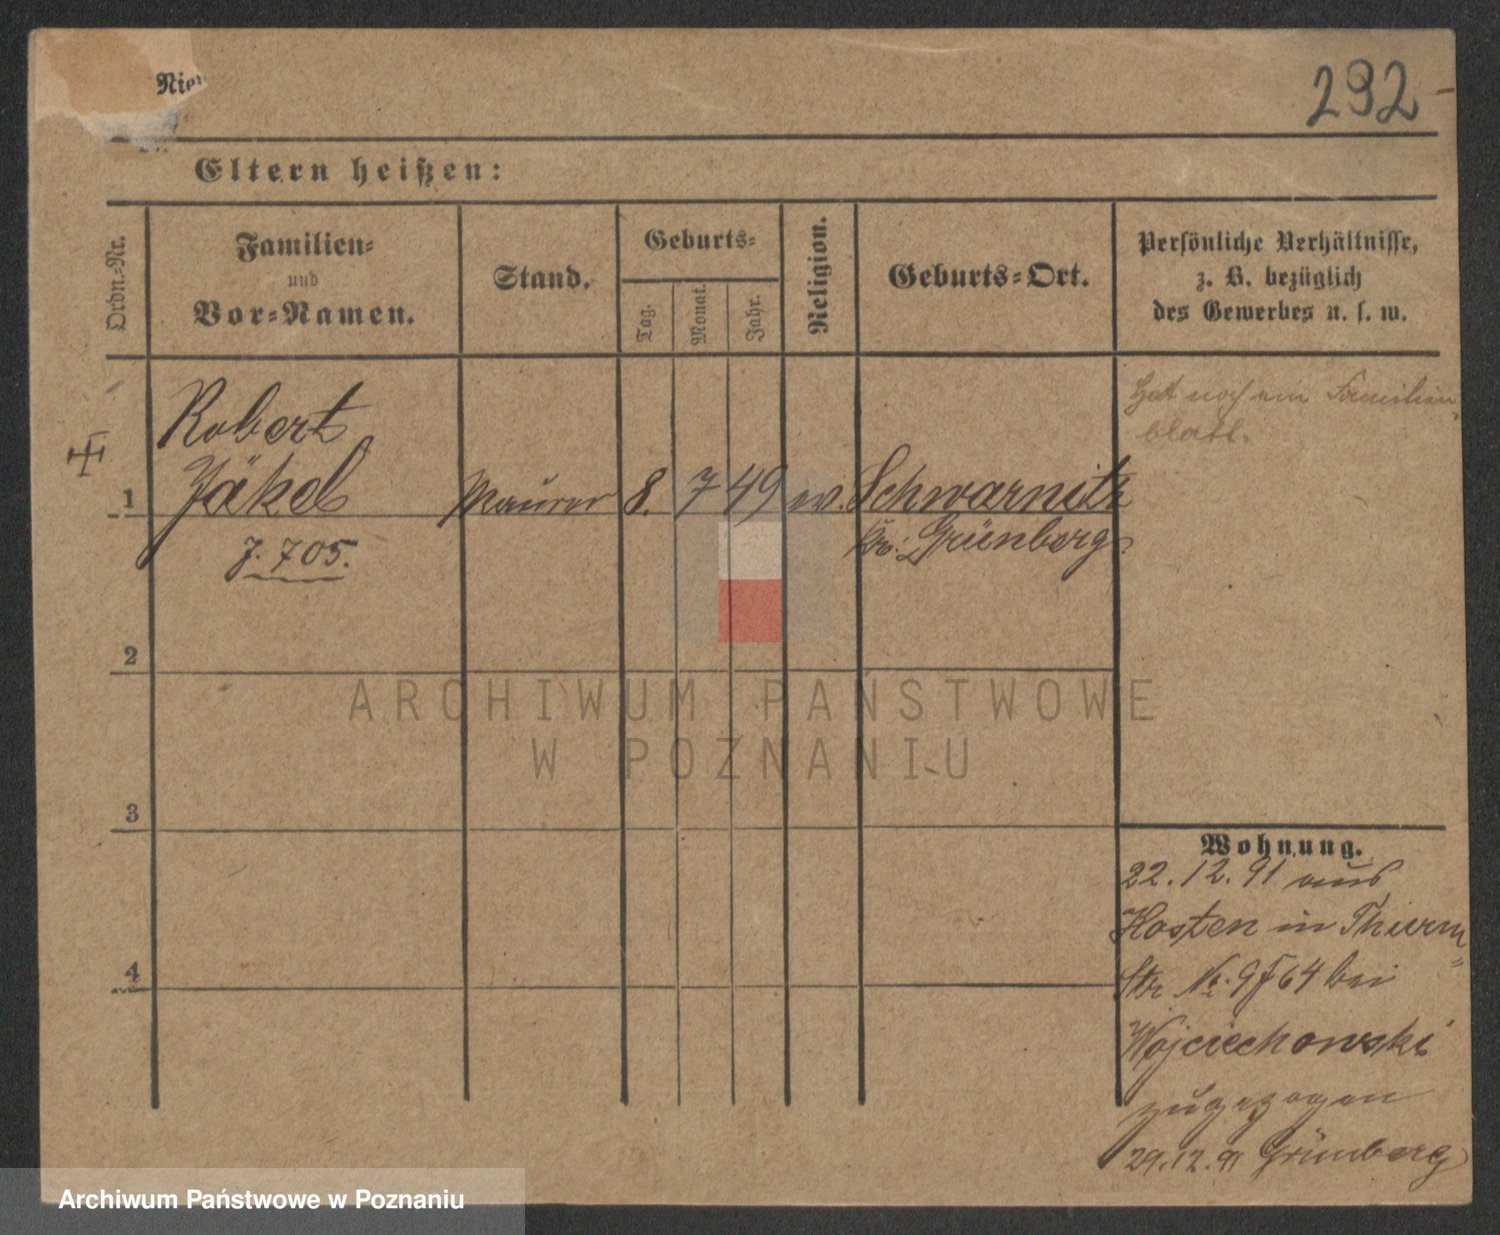 Nie
292
Eltern heißen:
Ordn.-Nr.
Familien-
und
Vor-Namen.
Stand.
Geburts-
Tag.
Monat.
Jahr.
Religion.
Geburts-Ort.
Persönliche Verhältnisse,
z. B. bezüglich
des Gewerbes u. s. w.
Hat noch ein Familien-
blatt.
Robert
1 Jäkel Maurer 8. 7 49 ev. Schwarnitz
J. 705. Kr. Grünberg
2
3
4
Wohnung.
22.12.91 aus
Kosten in Thurm-
Str No. 9 64 bei
Wojciechowski
zugezogen
29.12.91 Grünberg
ARCHIWUM PAŃSTWOWE
W POZNANIU
Archiwum Państwowe w Poznaniu